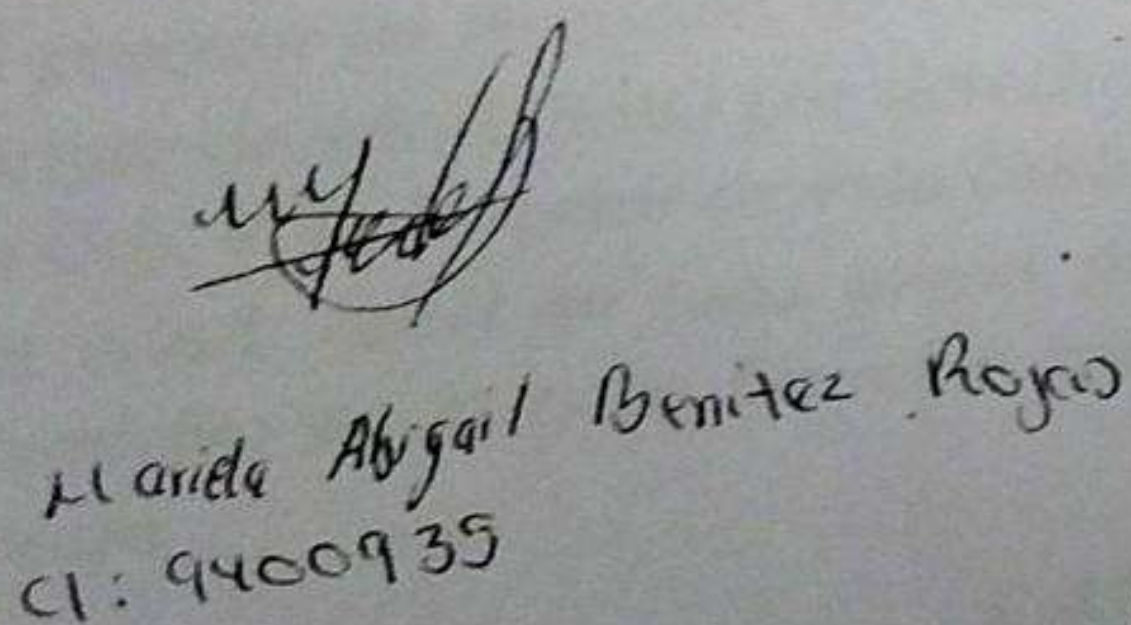 Mariela Abigail Benitez Rojas
CI: 9400935